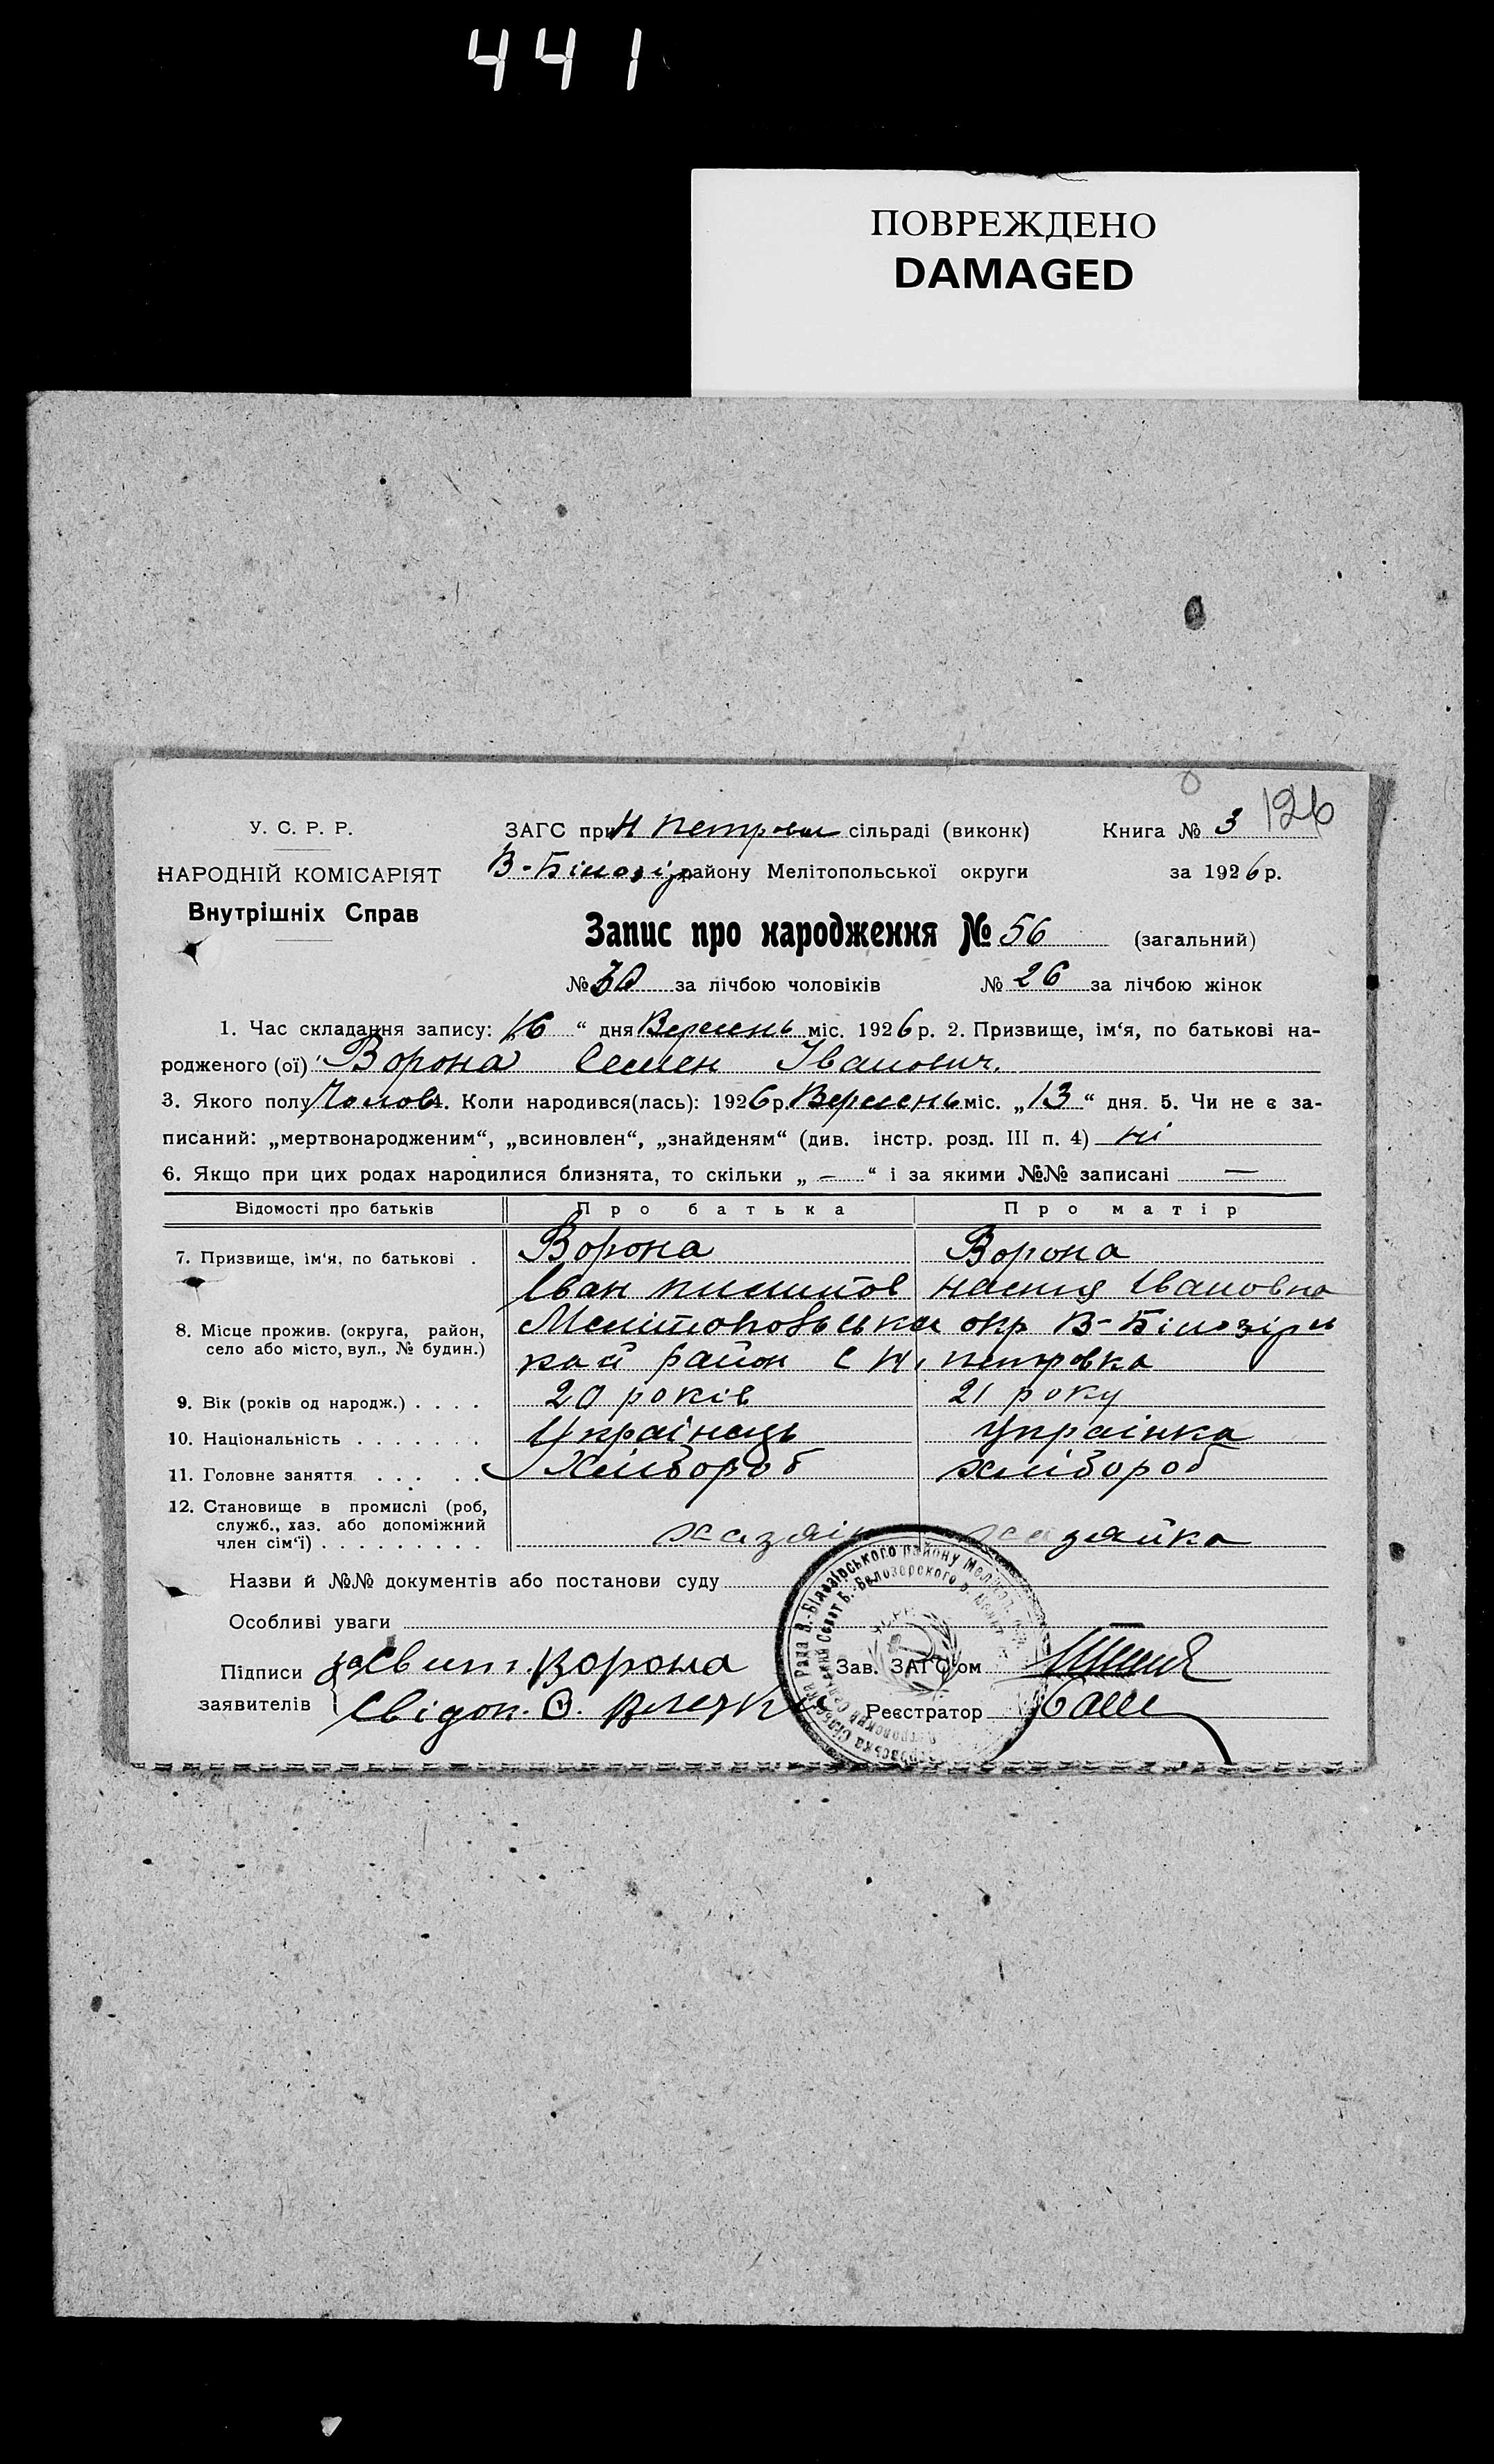 441
ПОВРЕЖДЕНО
DAMAGED
126
У. С. Р. Р.
ЗАГС при Н Петровск сільраді (виконк) Книга № 3
НАРОДНІЙ КОМІСАРІЯТ
В-Білозір району Мелітопольської округи за 1926 р.
Внутрішніх Справ
Запис про народження № 56 (загальний)
№ 30 за лічбою чоловіків № 26 за лічбою жінок
1. Час складання запису: 16 “ дня Вересень міс. 1926 р. 2. Призвище, ім‘я, по батькові на-
родженого (ої) Ворона Семен Іванович.
3. Якого полу Чолов. Коли народився(лась): 1926 р. Вересень міс. „13“ дня. 5. Чи не є за-
писаний: „мертвонародженим“, „всиновлен“, „знайденям“ (див. інстр. розд. III п. 4) ні
6. Якщо при цих родах народилися близнята, то скільки „ — “ і за якими №№ записані —
Відомості про батьків Про батька Про матір
7. Призвище, ім‘я, по батькові . Ворона Ворона
Іван настя Івановна
8. Місце прожив. (округа, район, село або місто, вул., № будин.) Мелітопольська окр В-Білозірсь
кай район с Н. петровка
9. Вік (років од народж.) . . . . 20 років 21 року
10. Національність . . . . . . . Українець Українка
11. Головне заняття . . . . . Хлібороб хлібороб
12. Становище в промислі (роб, служб., хаз. або допоміжний член сім‘ї) . . . . . . . . . хазяін хазяйка
Назви й №№ документів або постанови суду
Особливі уваги
Підписи Ворона Зав. ЗАГС‘ом
заявителів Свідок. Реєстратор